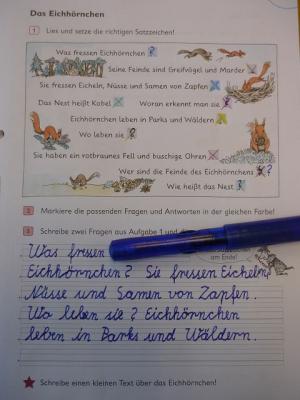 Das Eichhörnchen
1 Lies und setze die richtigen Satzzeichen!
Was fressen Eichhörnchen ?
Seine Feinde sind Greifvögel und Marder
Sie fressen Eicheln, Nüsse und Samen von Zapfen
Das Nest heißt Kobel
Woran erkennt man sie
Eichhörnchen leben in Parks und Wäldern
Wo leben sie ?
Sie haben ein rotbraunes Fell und buschige Ohren
Wer sind die Feinde des Eichhörnchens ?
Wie heißt das Nest ?
2 Markiere die passenden Fragen und Antworten in der gleichen Farbe!
3 Schreibe zwei Fragen aus Aufgabe 1 und
am Ende!
Was fressen
Eichhörnchen? Sie fressen Eicheln,
Nüsse und Samen von Zapfen.
Wo leben sie? Eichhörnchen
leben in Parks und Wäldern.
Schreibe einen kleinen Text über das Eichhörnchen!